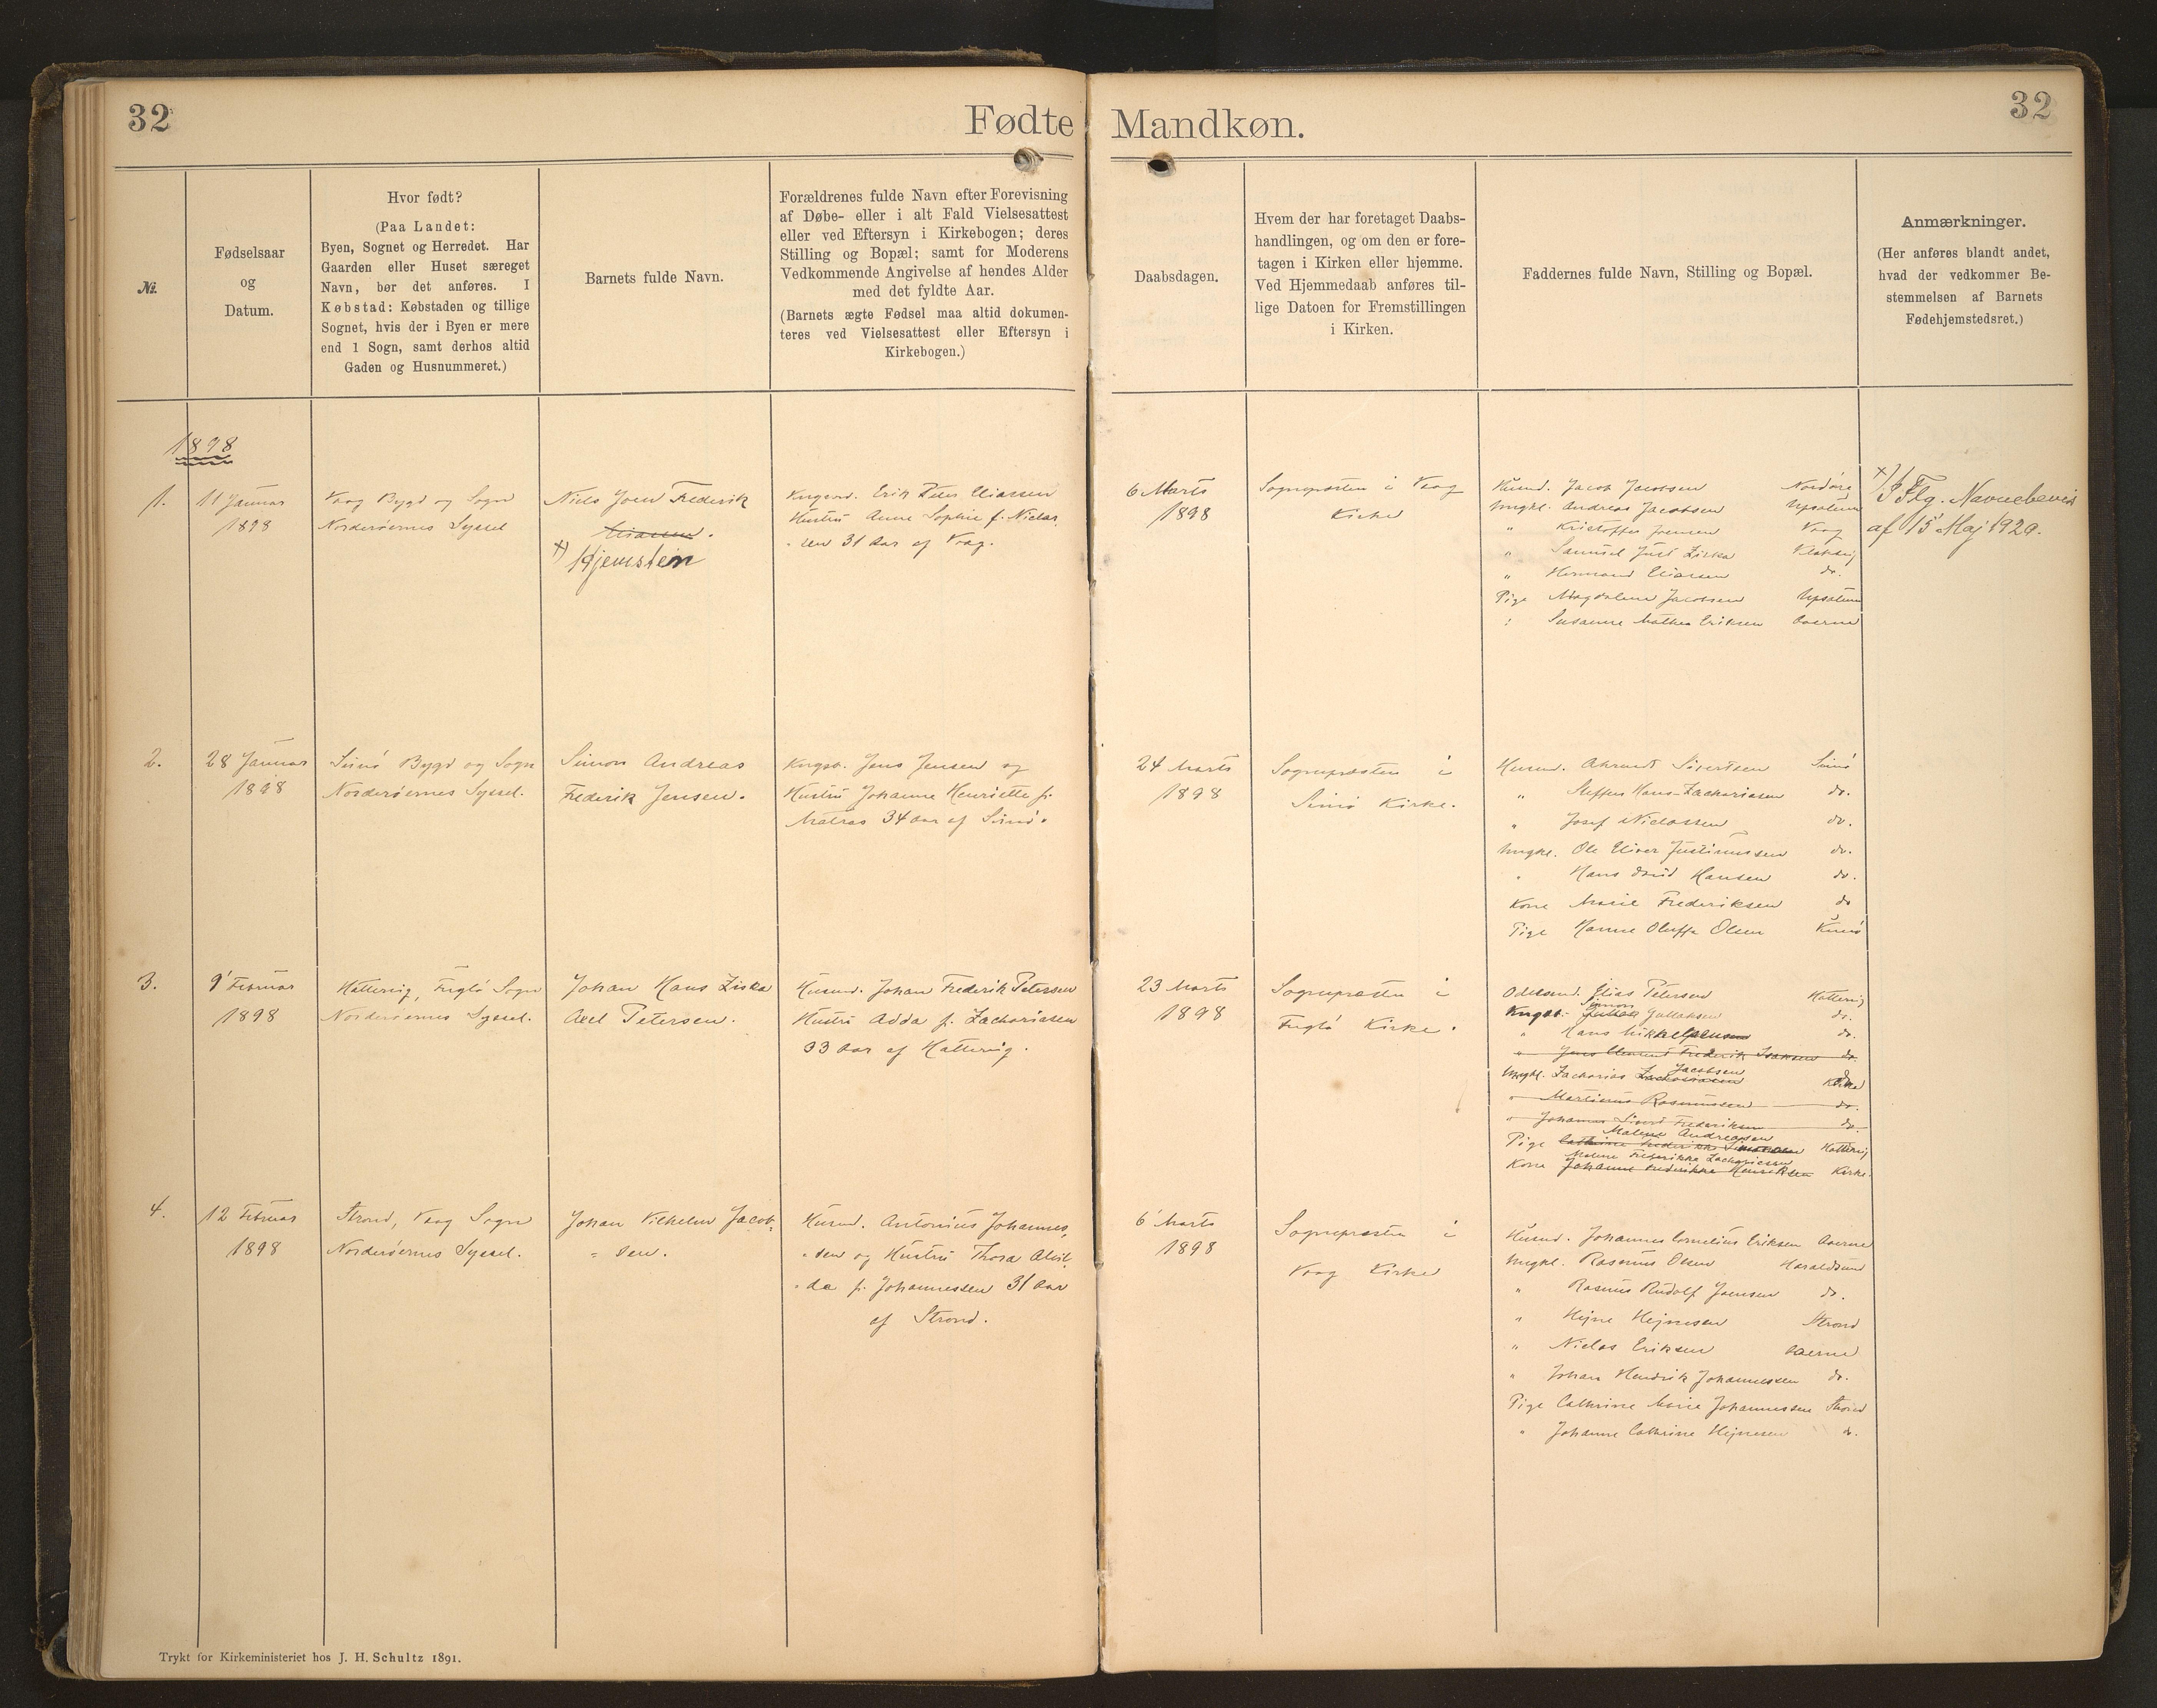 32
Fødte Mandkøn.
32
№.
Fødselsaar
og
Datum.
Hvor født?
(Paa Landet:
Byen, Sognet og Herredet. Har
Gaarden eller Huset særeget
Navn, bør det anføres. I
Købstad: Købstaden og tillige
Sognet, hvis der i Byen er mere
end 1 Sogn, samt derhos altid
Gaden og Husnummeret.)
Barnets fulde Navn.
Forældrenes fulde Navn efter Forevisning
af Døbe- eller i alt Fald Vielsesattest
eller ved Eftersyn i Kirkebogen; deres
Stilling og Bopæl; samt for Moderens
Vedkommende Angivelse af hendes Alder
med det fyldte Aar.
(Barnets ægte Fødsel maa altid dokumen-
teres ved Vielsesattest eller Eftersyn i
Kirkebogen.)
Daabsdagen.
Hvem der har foretaget Daabs-
handlingen, og om den er fore-
tagen i Kirken eller hjemme.
Ved Hjemmedaab anføres til-
lige Datoen for Fremstillingen
i Kirken.
Faddernes fulde Navn, Stilling og Bopæl.
Anmærkninger.
(Her anføres blandt andet,
hvad der vedkommer Be-
stemmelsen af Barnets
Fødehjemstedsret.)
1898
1.
11 Januar
1898
Vaag Bygd og Sogn
Norderøernes Syssel
Niels Joen Frederik
Eliassen.
x) Hjemstein
Kngsbd. Erik Peter Eliassen
Hustru Anne Sophie f. Niclas
sen 31 Aar af Vaag.
6 Marts
1898
Sognepræsten i Vaag
Kirke
Husmd. Jacob Jacobsen Nordøre
Ungkl. Andreas Jacobsen Upsalum
" Kristoffer Joensen Vaag
" Samuel Just Ziska Klaksvig
" Hermand Eliassen do.
Pige Magdalena Jacobsen Upsalum
" Susanne Mathea Eriksen Aaerne
x) Iflg. Navnebevis
af 15 Maj 1929.
2.
28 Januar
1898
Svinø Bygd og Sogn
Norderøernes Syssel.
Simon Andreas
Frederik Jensen.
Kngsb. Jens Jensen og
Hustru Johanne Henriette f.
Matras 34 Aar af Svinø.
24 Marts
1898
Sognepræsten i
Svinø Kirke.
Husmd. Ahrendt Sivertsen Svinø
" Steffen Hans Zachariasen do.
" Josef Niclassen do.
Ungkl. Ole Eliver Justinussen do.
" Hans David Hansen do.
Kone Marie Frederiksen do
Pige Hanne Oluffa Olsen Kunø
3.
9 Februar
1898
Hattervig, Fuglø Sogn
Norderøernes Syssel.
Johan Hans Ziska
Axel Petersen.
Husmd. Johan Frederik Petersen
Hustru Adda f. Zachariasen
33 Aar af Hattervig.
23 Marts
1898
Sognepræsten i
Fuglø Kirke.
Odelsmd. Elias Petersen Hattervig
Simon
Kngsb. Jullaksen do.
" Hans Mikkelsen do.
" Jens Clement Frederik Isaksen do.
Jacobsen
Ungkl. Zacharias Zachariasen Kirke
" Martinus Rasmussen do.
" Johannes Sivert Frederiksen do.
Malene Andreasen
Pige Cathrine Frederikke Hattervig
Malene Frederikke Zachariasen
Kone Johanne Frederikke Henriksen Kirke.
4.
12 Februar
1898
Strond, Vaag Sogn
Norderøernes Syssel.
Johan Vilhelm Jacob-
sen.
Husmd. Antonius Johannes-
sen og Hustru Thora Alvil-
da f. Johannessen 31 Aar
af Strond.
6 Marts
1898
Sognepræsten i
Vaag Kirke
Husmd. Johannes Cornelius Eriksen Aaerne
Ungkl. Rasmus Olsen Haraldsund
" Rasmus Rudolf Joensen do.
" Hejne Hejnesen Strond
" Niclas Eriksen Aaerne
" Johan Hendrik Johannessen do.
Pige Cathrine Marie Johannessen Strond
" Johanne Cathrine Hejnesen do.
Trykt for Kirkeministeriet hos J. H. Schultz 1891.